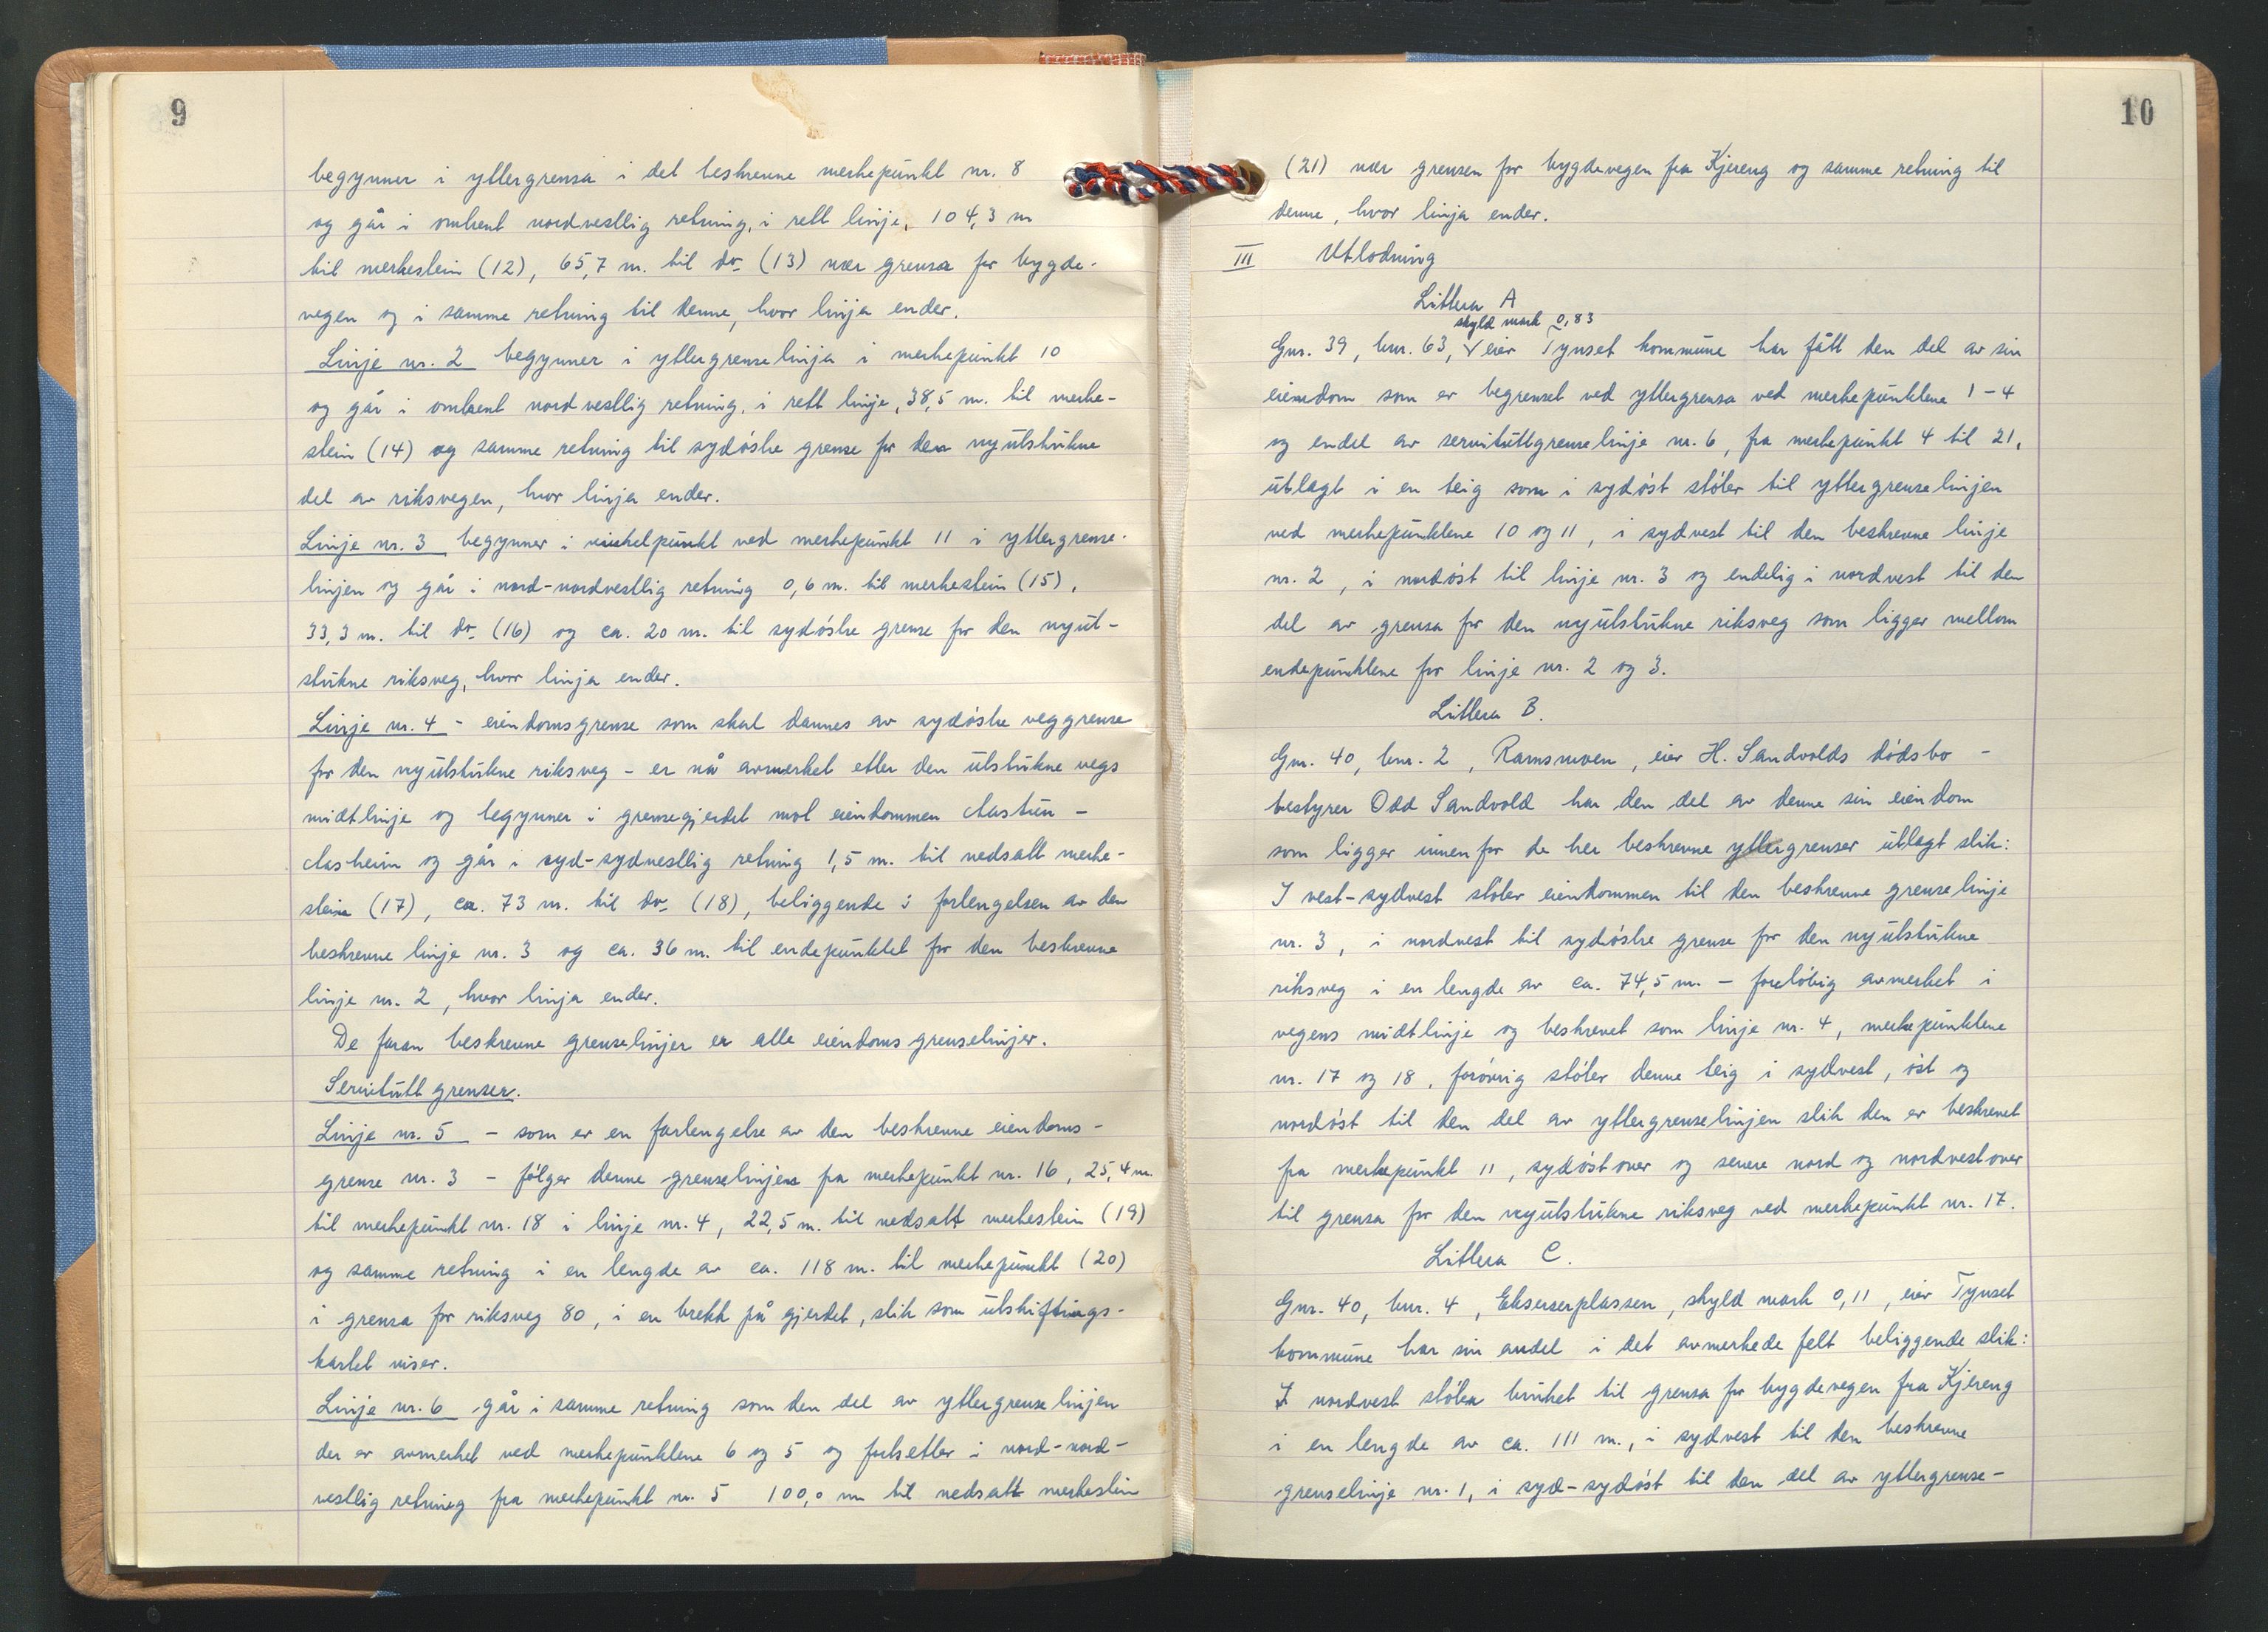 9
begynner i yttergrensa i det beskrevne merkepunkt nr. 8
og går i omtrent nordvestlig retning, i rett linje, 104,3 m
til merkestein (12), 65,7 m. til do (13) nær grensa for bygde-
vegen og i samme retning til denne, hvor linja ender.
Linje nr. 2 begynner i yttergrenselinja i merkepunkt 10
og går i omtrent nordvestlig retning, i rett linje, 38,5 m. til merke-
stein (14) og samme retning til sydøstre grense for den nyutstukne
del av riksvegen, hvor linja ender.
Linje nr. 3 begynner i vinkelpunkt ved merkepunkt 11 i yttergrense-
linjen og går i nord-nordvestlig retning 0,6 m. til merkestein (15),
33,3 m. til do (16) og ca. 20 m. til sydøstre grense for den nyut-
stukne riksveg, hvor linja ender.
Linje nr. 4 - eiendomsgrense som skal dannes av sydøstre veggrense
for den nyutstukne riksveg - er nå avmerket etter den utstukne vegs
midtlinje og begynner i grensegjerdet mot eiendommen Aastun -
Aasheim og går i syd-sydvestlig retning 1,5 m. til nedsatt merke-
stein (17), ca. 73 m. til do (18), beliggende i forlengelsen av den
beskrevne linje nr. 3 og ca. 36 m. til endepunktet for den beskrevne
linje nr. 2, hvor linja ender.
De foran beskrevne grenselinjer er alle eiendomsgrenselinjer.
Servitutt grenser.
Linje nr. 5 - som er en forlengelse av den beskrevne eiendoms-
grense nr. 3 - følger denne grenselinjen fra merkepunkt nr. 16, 25,4 m.
til merkepunkt nr. 18 i linje nr. 4, 22,5 m. til nedsatt merkestein (19)
og samme retning i en lengde av ca. 118 m. til merkepunkt (20)
i grensa for riksveg 80, i en brekk på gjerdet, slik som utskiftings-
kartet viser.
Linje nr. 6 går i samme retning som den del av yttergrenselinjen
der er avmerket ved merkepunktene 6 og 5 og fortsetter i nord-nord-
vestlig retning fra merkepunkt nr. 5 100,0 m til nedsatt merkestein
10
(21) nær grensen for bygdevegen fra Kjereng og samme retning til
denne, hvor linja ender.
III Utlodning
Littera A
skyld mark 0,83
Gnr. 39, bnr. 63, eier Tynset kommune har fått den del av sin
eiendom som er begrenset ved yttergrensa ved merkepunktene 1-4
og endel av servituttgrenselinje nr. 6, fra merkepunkt 4 til 21,
utlagt i en teig som i sydøst støter til yttergrenselinjen
ved merkepunktene 10 og 11, i sydvest til den beskrevne linje
nr. 2, i nordøst til linje nr. 3 og endelig i nordvest til den
del av grensa for den nyutstukne riksveg som ligger mellom
endepunktene for linje nr. 2 og 3.
Littera B.
Gnr. 40, bnr. 2, Ramsmoen, eier H. Sandvolds dødsbo -
bestyrer Odd Sandvold har den del av denne sin eiendom
som ligger innenfor de her beskrevne yttergrenser utlagt slik:
I vest-sydvest støter eiendommen til den beskrevne grenselinje
nr. 3, i nordvest til sydøstre grense for den nyutstukne
riksveg i en lengde av ca. 74,5 m. - foreløbig avmerket i
vegens midtlinje og beskrevet som linje nr. 4, merkepunktene
nr. 17 og 18, forøvrig støter denne teig i sydvest, øst og
nordøst til den del av yttergrenselinjen slik den er beskrevet
fra merkepunkt 11, sydøstover og senere nord og nordvestover
til grensa for den nyutstukne riksveg ved merkepunkt nr. 17.
Littera C.
Gnr. 40, bnr. 4, Ekserserplassen, skyld mark 0,11, eier Tynset
kommune har sin andel i det avmerkede felt beliggende slik:
I nordvest støter bruket til grensa for bygdevegen fra Kjereng
i en lengde av ca. 111 m., i sydvest til den beskrevne
grenselinje nr. 1, i syd-sydøst til den del av yttergrense-